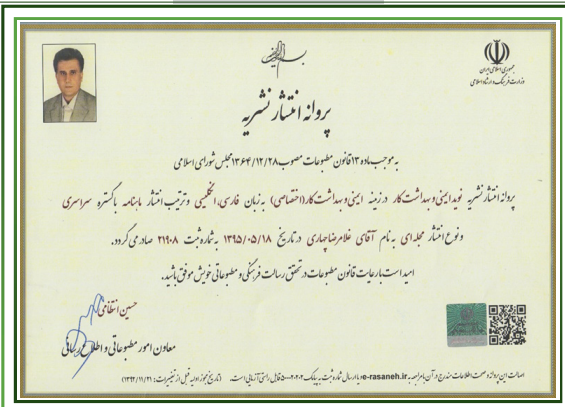 جمهوری اسلامی ایران
وزارت فرهنگ و ارشاد اسلامی
پروانه انتشار نشریه
به موجب ماده ۱۳ قانون مطبوعات مصوب ۱۳۶۴/۱۲/۲۸ مجلس شورای اسلامی
پروانه انتشار نشریه نوید ایمنی و بهداشت کار در زمینه ایمنی و بهداشت کار (اختصاصی) به زبان فارسی، انگلیسی و ترتیب انتشار ماهنامه با گستره سراسری
و نوع انتشار مجله ای به نام آقای غلامرضا چهاری در تاریخ ۱۳۹۵/۰۵/۱۸ به شماره ثبت ۲۱۹۰۸ صادر می گردد.
امید است با رعایت قانون مطبوعات در تحقق رسالت فرهنگی و مطبوعاتی خویش موفق باشید.
حسین انتظامی
معاون امور مطبوعاتی و اطلاع رسانی
اصالت این پروانه و صحت اطلاعات مندرج در آن با مراجعه به e-rasaneh.ir و یا ارسال شماره ثبت به پیامک ۵۰۰۰۲۰۲۰۲ قابل راستی آزمایی است. (تاریخ مجوز اولیه قبل از تغییرات: ۱۳۹۲/۱۱/۲۱)